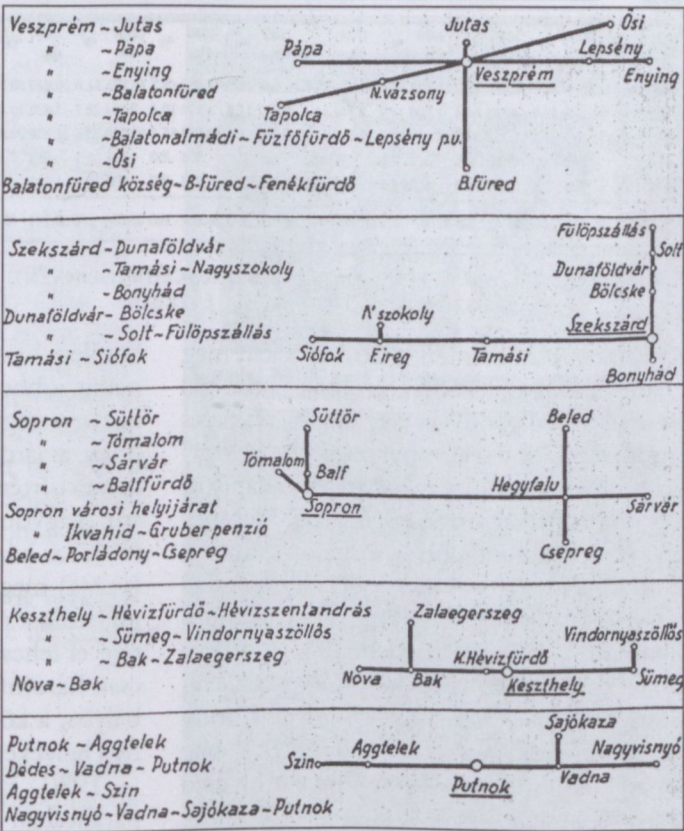 Veszprém ~ Jutas
" ~ Pápa
" ~ Enying
" ~ Balatonfüred
" ~ Tapolca
" ~ Balatonalmádi ~ Fűzfőfürdő ~ Lepsény pu.
" ~ Ősi
Balatonfüred község ~ B-füred ~ Fenékfürdő
Jutas
Ősi
Pápa
Lepsény
Veszprém
Enying
N.vázsony
Tapolca
B.füred
Szekszárd ~ Dunaföldvár
" ~ Tamási ~ Nagyszokoly
" ~ Bonyhád
Dunaföldvár ~ Bölcske
" ~ Solt ~ Fülöpszállás
Tamási ~ Siófok
Fülöpszállás
Solt
Dunaföldvár
Bölcske
N'szokoly
Szekszárd
Siófok
Eireg
Tamási
Bonyhád
Sopron ~ Süttör
" ~ Tómalom
" ~ Sárvár
" ~ Balffürdő
Sopron városi helyijárat
" Ikvahid ~ Gruber penzió
Beled ~ Porládony ~ Csepreg
Süttör
Beled
Tómalom
Balf
Hegyfalu
Sopron
Sárvár
Csepreg
Keszthely ~ Hévizfürdő ~ Hévizszentandrás
" ~ Sümeg ~ Vindornyaszöllős
" ~ Bak ~ Zalaegerszeg
Nova ~ Bak
Zalaegerszeg
Vindornyaszöllős
K.Hévizfürdő
Nova
Bak
Keszthely
Sümeg
Putnok ~ Aggtelek
Dédes ~ Vadna ~ Putnok
Aggtelek ~ Szin
Nagyvisnyó ~ Vadna ~ Sajókaza ~ Putnok
Sajókaza
Szin
Aggtelek
Nagyvisnyó
Putnok
Vadna